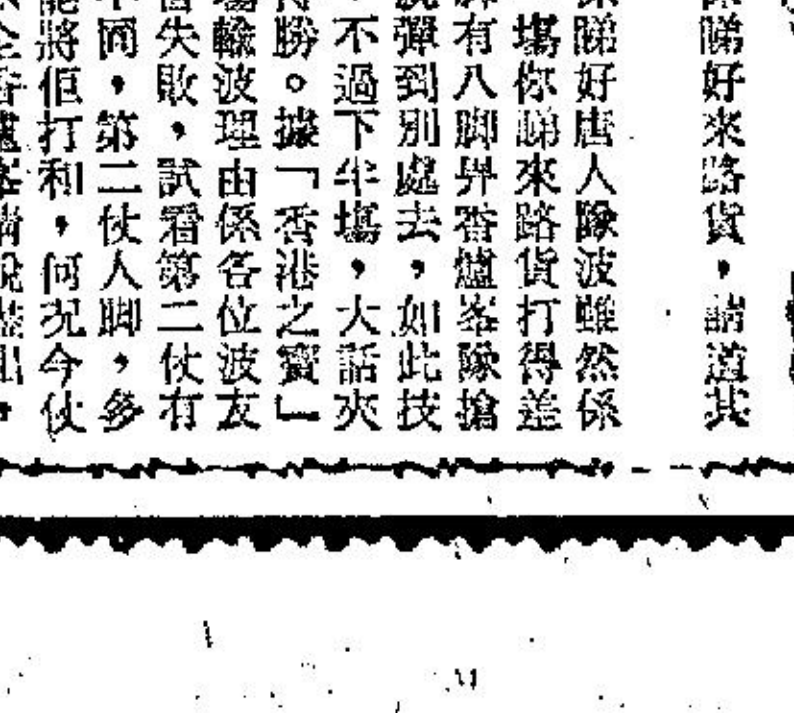 睇好來路貨，請道其
睇好唐人隊波雖然係
塲你睇來路貨打得差
有八脚畀香爐峯隊搶
彈到別處去，如此技
不過下半塲，大話夾
勝。據「香港之寶」
塲輸波理由係各位波友
失敗，試看第二仗有
不同，第二仗人脚，多
能將佢打和，何况今仗